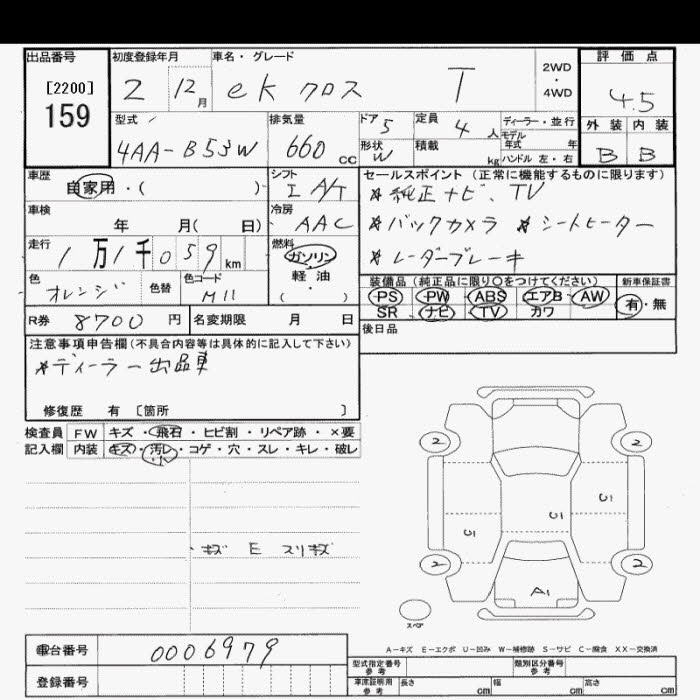 出品番号
[2200]
159
初度登録年月
2 12月
車名・グレード
ek クロス T
2WD
・
4WD
評価点
4.5
外装 内装
B B
型式
4AA-B53W
排気量
660 cc
ドア 5
形状 W
定員 4 人
積載 kg
ディーラー・並行
モデル
年式 年
ハンドル 左・右
車歴
自家用・( )
シフト
I A/T
車検
年 月( 日)
冷房
AAC
走行
1万1千059 km
燃料
ガソリン
軽油
・
( )
色
オレンジ
色替
色コード
M11
セールスポイント(正常に機能するものに限ります)
*純正ナビ、TV
*バックカメラ *シートヒーター
*レーダーブレーキ
装備品(純正品に限り〇をつけてください)
PS PW ABS エアB AW
SR ナビ TV カワ
新車保証書
有・無
R券 8700 円
名変期限 月 日
後日品
注意事項申告欄(不具合内容等は具体的に記入して下さい)
*ディーラー出品車
修復歴 有 〔箇所 〕
検査員 FW キズ・飛石・ヒビ割・リペア跡・×要
記入欄 内装 キズ・汚レ・コゲ・穴・スレ・キレ・破レ
小
キズ E スリキズ
2 2
C1
U1
C1
2 2
A1
スペア
A-キズ E-エクボ U-凹み W-補修跡 S-サビ C-腐食 XX-交換済
車台番号
0006979
登録番号
型式指定番号
参考
類別区分番号
参考
車庫証明用
参考
長さ cm
幅 cm
高さ cm